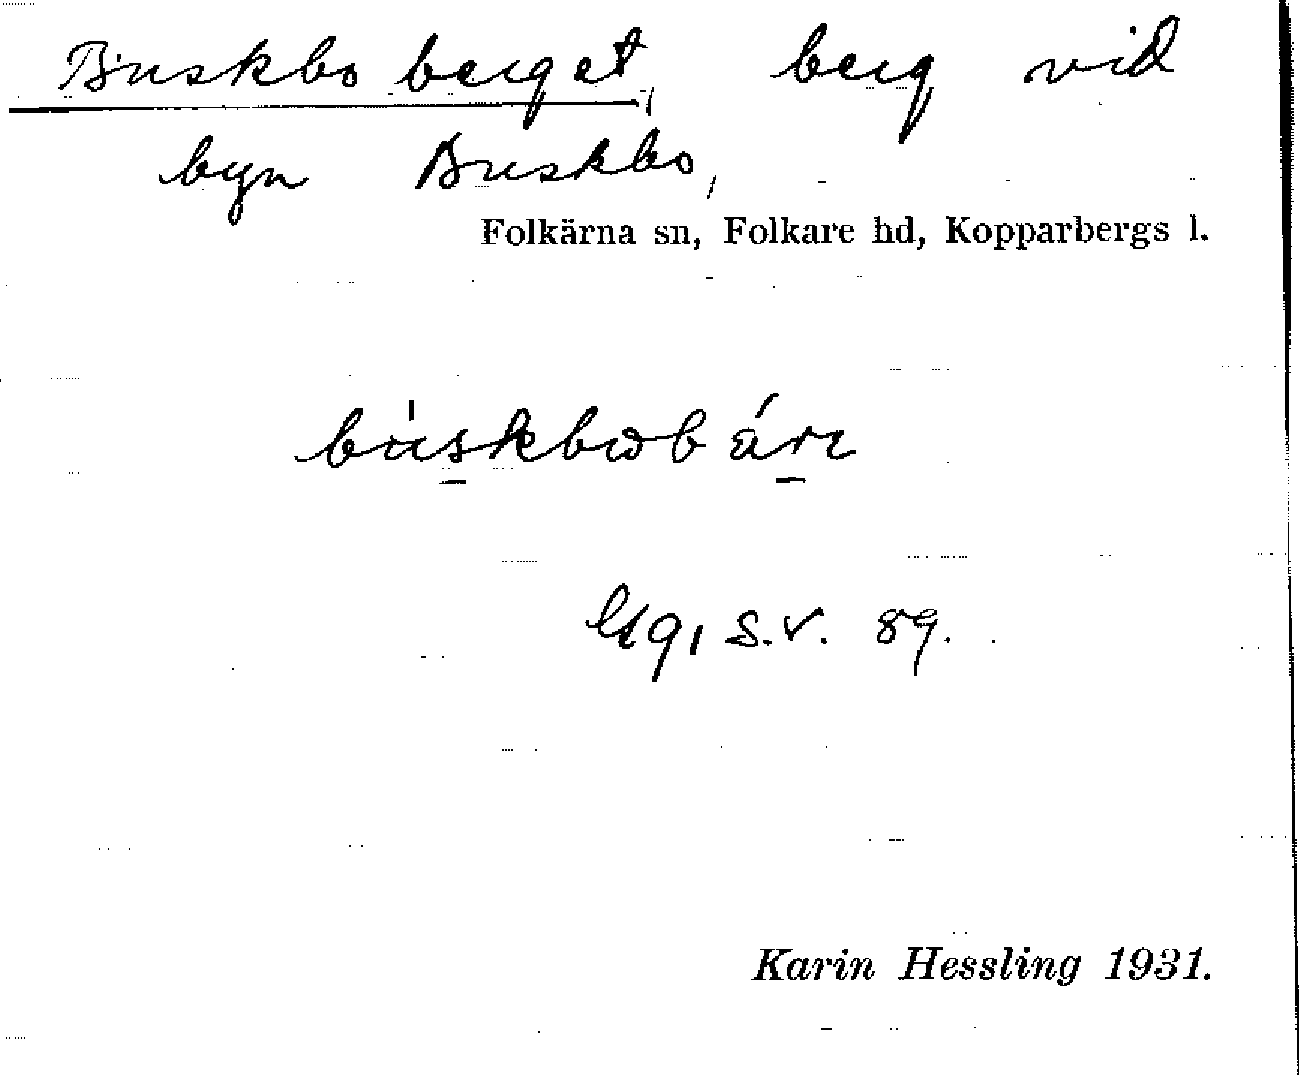 Buskboberget, berg vid
byn Buskbo,
Folkärna sn, Folkare hd, Kopparbergs l.
s.v. 89.
Karin Hessling 1931.